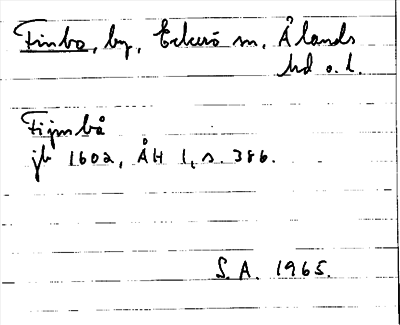 Finbo, by, Eckerö sn, Ålands
hd o. l.
Fijnbå
jb 1602, ÅH 1, s. 386.
S. A. 1965.